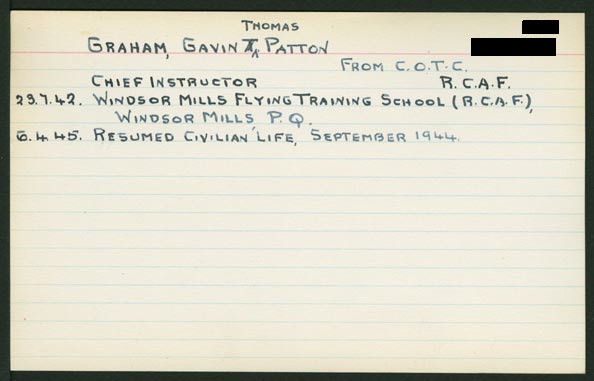 THOMAS
GRAHAM, GAVIN T. PATTON
FROM C.O.T.C.
CHIEF INSTRUCTOR R.C.A.F.
23.7.42. WINDSOR MILLS FLYING TRAINING SCHOOL (R.C.A.F.),
WINDSOR MILLS P.Q.
6.4.45. RESUMED CIVILIAN LIFE, SEPTEMBER 1944.